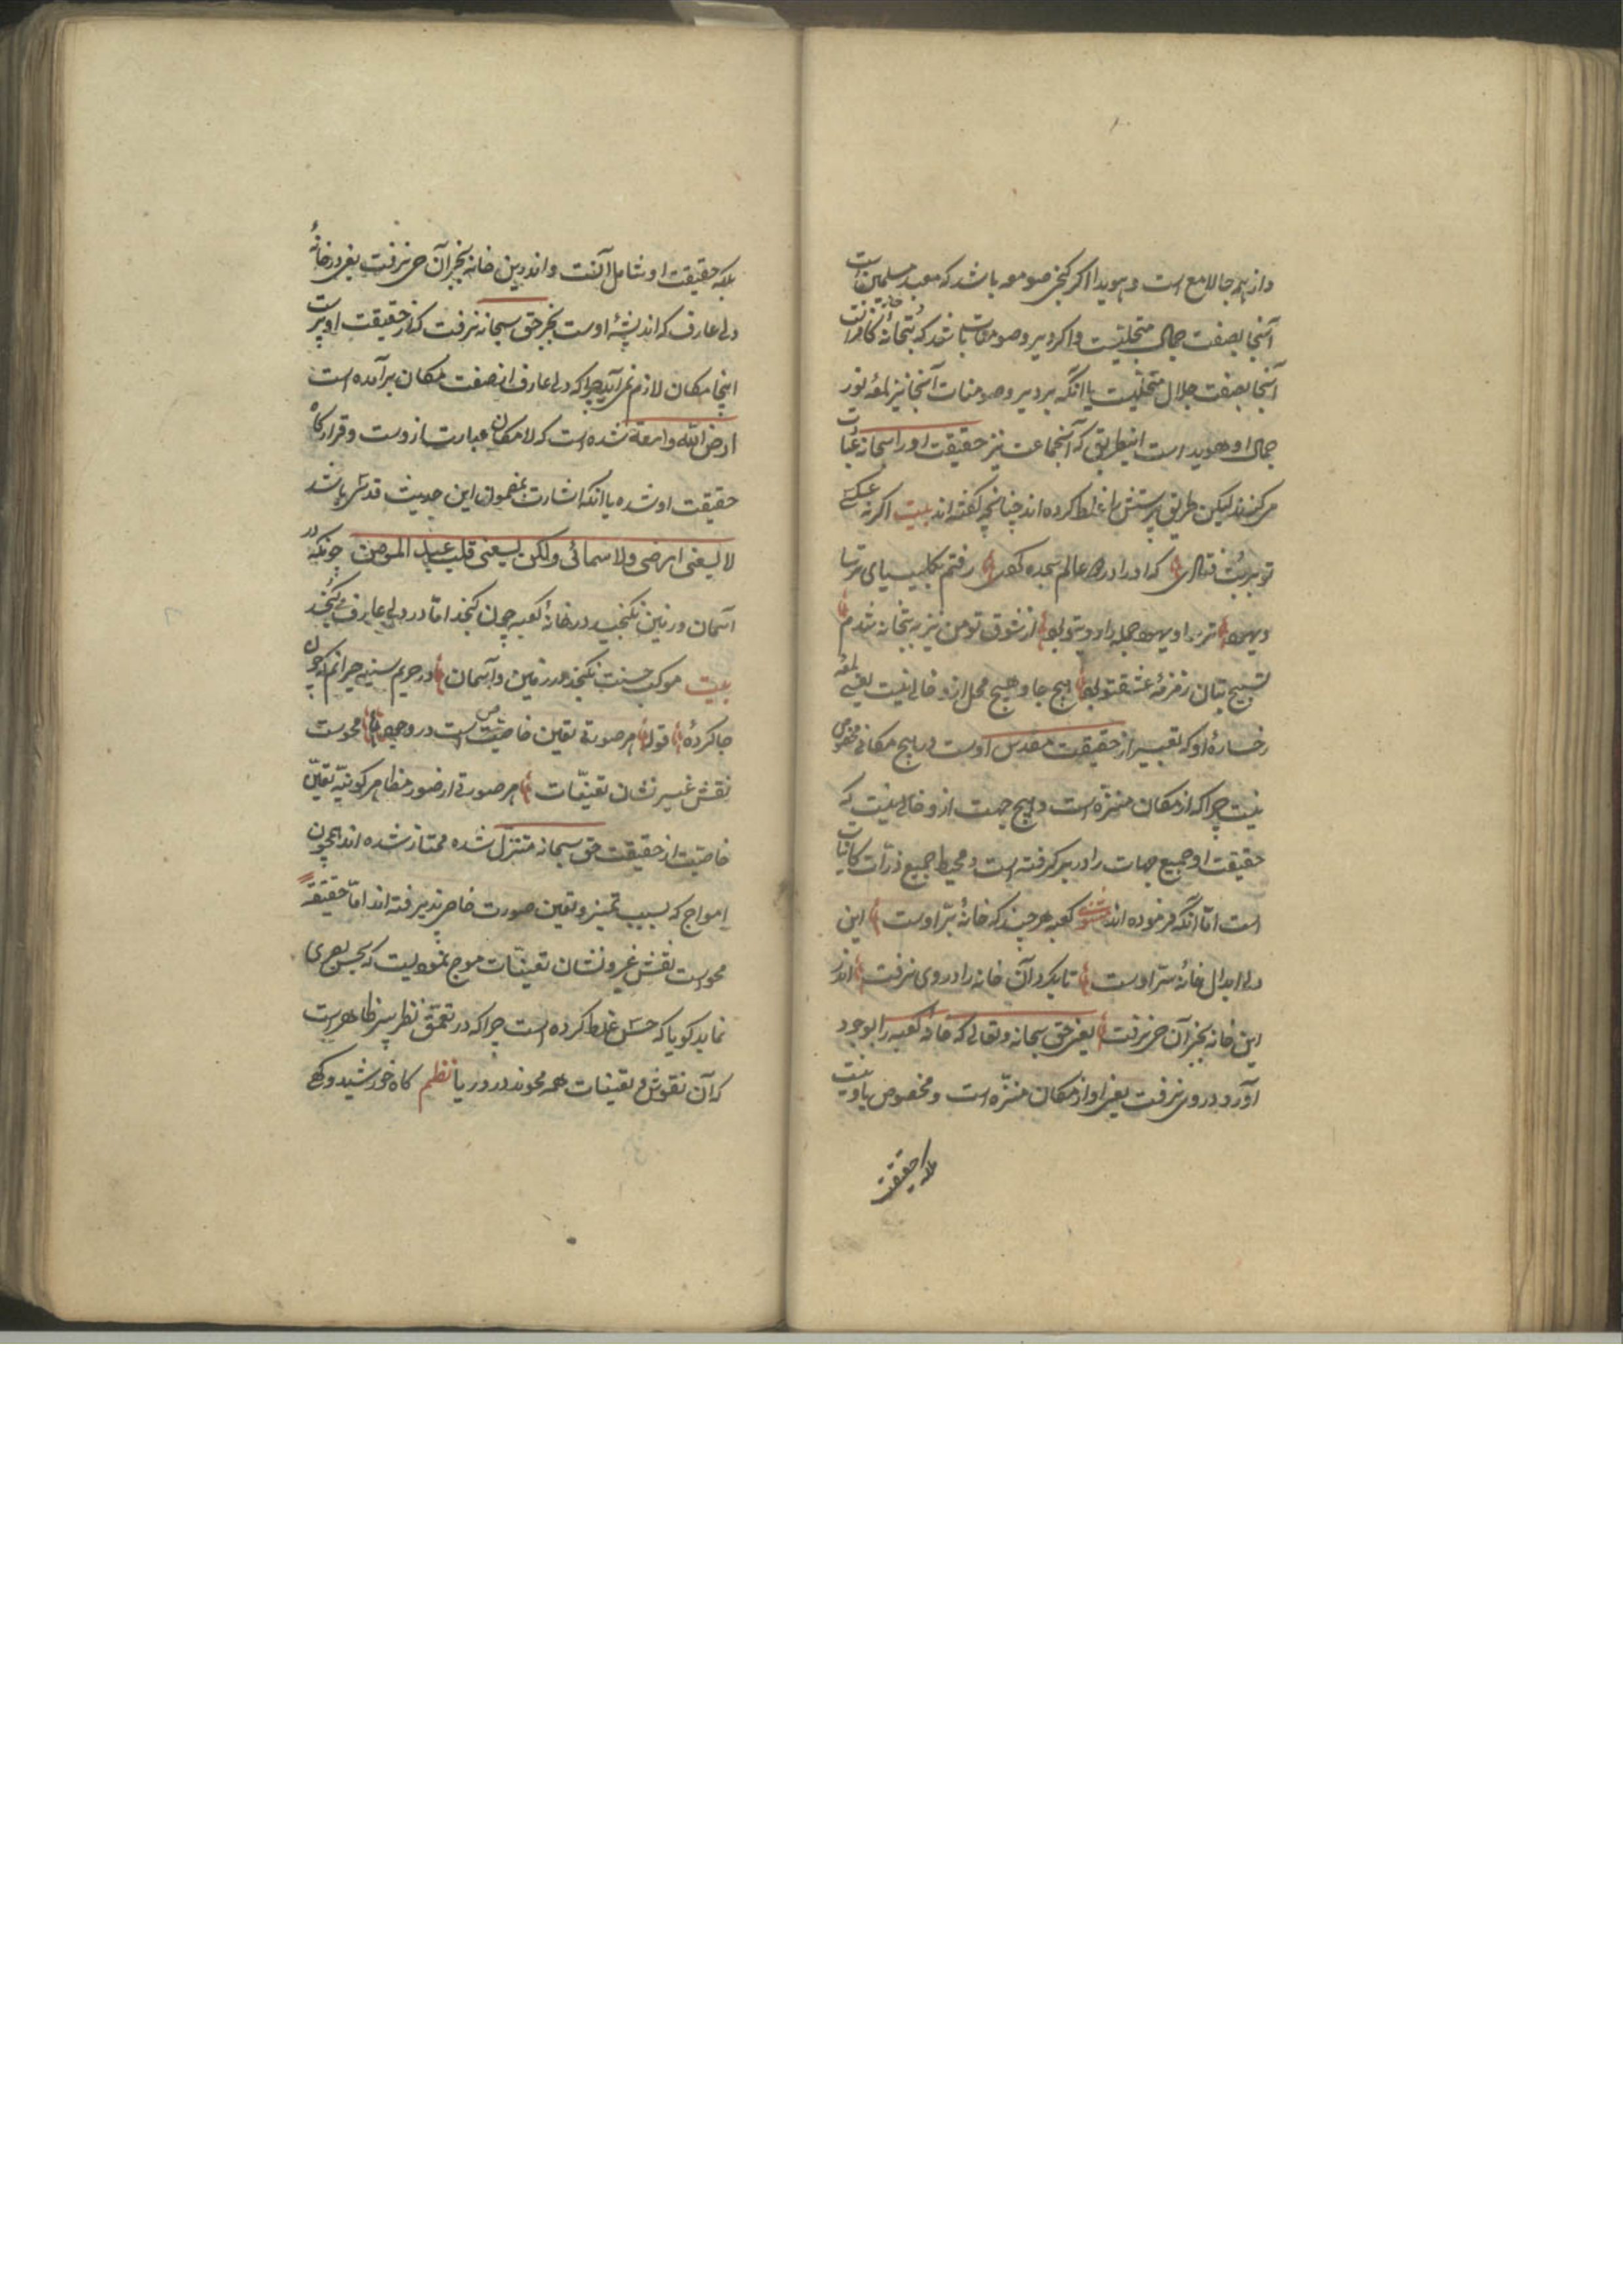 واز همه جا لامع است و هویدا اگر کنج صومعه باشد که معبد مسلمین است
آنجا بصفت جمال متجلیست و اگر دیر و سومنات باشد که بتخانهٔ کافرانست
آنجا بصفت جلال متجلیست یا آنکه بر دیر و سومنات آنجا نیز لمعهٔ نور
جمال او هویداست اینطریق که آنجماعت نیز حقیقت او را سبحانه عبادت
میکنند لیکن طریق پرستش را غلط کرده اند چنانچه گفته اند بیت اگر نه عکس
تو بر بت فتادی که او را در همه عالم سجده کردی رفتم بکلیسیای ترسا
و یهود ترسا و یهود جمله را رو بتو بود از شوق تو من نیز به بتخانه شدم
تسبیح بتان زمزمهٔ عشق تو بود هیچ جا و هیچ محل ازو خالی نیست یعنی لمعهٔ
رخسارهٔ او که تعبیر از حقیقت مقدس اوست در هیچ مکانی مخصوص
نیست چرا که از مکان منزّه است و هیچ جهت ازو خالی نیست که
حقیقت او جمیع جهات را در بر گرفته است و محیط جمیع ذرّات کاینات
است امّا آنکه فرموده اند مثنوی کعبه هر چند که خانهٔ برّ اوست این
دل ابدال خانهٔ سرّ اوست تا بکرد آن خانه را در وی نرفت اندر
این خانه بجز آن حی نرفت یعنی حق سبحانه و تعالی که خانهٔ کعبه را بوجود
آورد در وی نرفت یعنی او از مکان منزّه است و مخصوص باو نیست
بلکه حقیقت
بلکه حقیقت او شامل آنست و اندرین خانه بجز آن حی نرفت یعنی در خانهٔ
دل عارف که اندیشهٔ اوست بجز حق سبحانه نرفت که از حقیقت او پرست
اینجا مکان لازم نمی آید چرا که دل عارف از صفت مکان برآمده است
ارض الله واسعة شده است که لامکان عبارت ازوست و قرارگاه
حقیقت او شده یا آنکه اشارت بمضمون این حدیث قدسی باشد
لا یسعنی ارضی ولا سمائی ولکن یسعنی قلب عبد المؤمن چونکه در
آسمان و زمین نگنجید در خانهٔ کعبه چون گنجد امّا در دل عارف می گنجد
بیت موکب حسنت نگنجد در زمین و آسمان در حریم سینه حیرانم که چون
جا کردهٔ قوله هر صورتی تعین خاصیست در وجود محوست
نقش غیر نشان تعیّنات هر صورتی از صور مظاهر کونیّه تعیّن
خاصیت از حقیقت حق سبحانه متنزّل شده ممتاز شده اند همچون
امواج که بسبب تمیز و تعین صورت خاص پذیرفته اند امّا حقیقةً
محوست نقش غیر و نشان تعیّنات موج نمودیست که بحس بصری
نماید گویا که حسّ غلط کرده است چرا که در تعمّق نظر سر ظاهرست
که آن نقوش و تعینات همه محوند در دریا نظم گاه خورشید و گهی